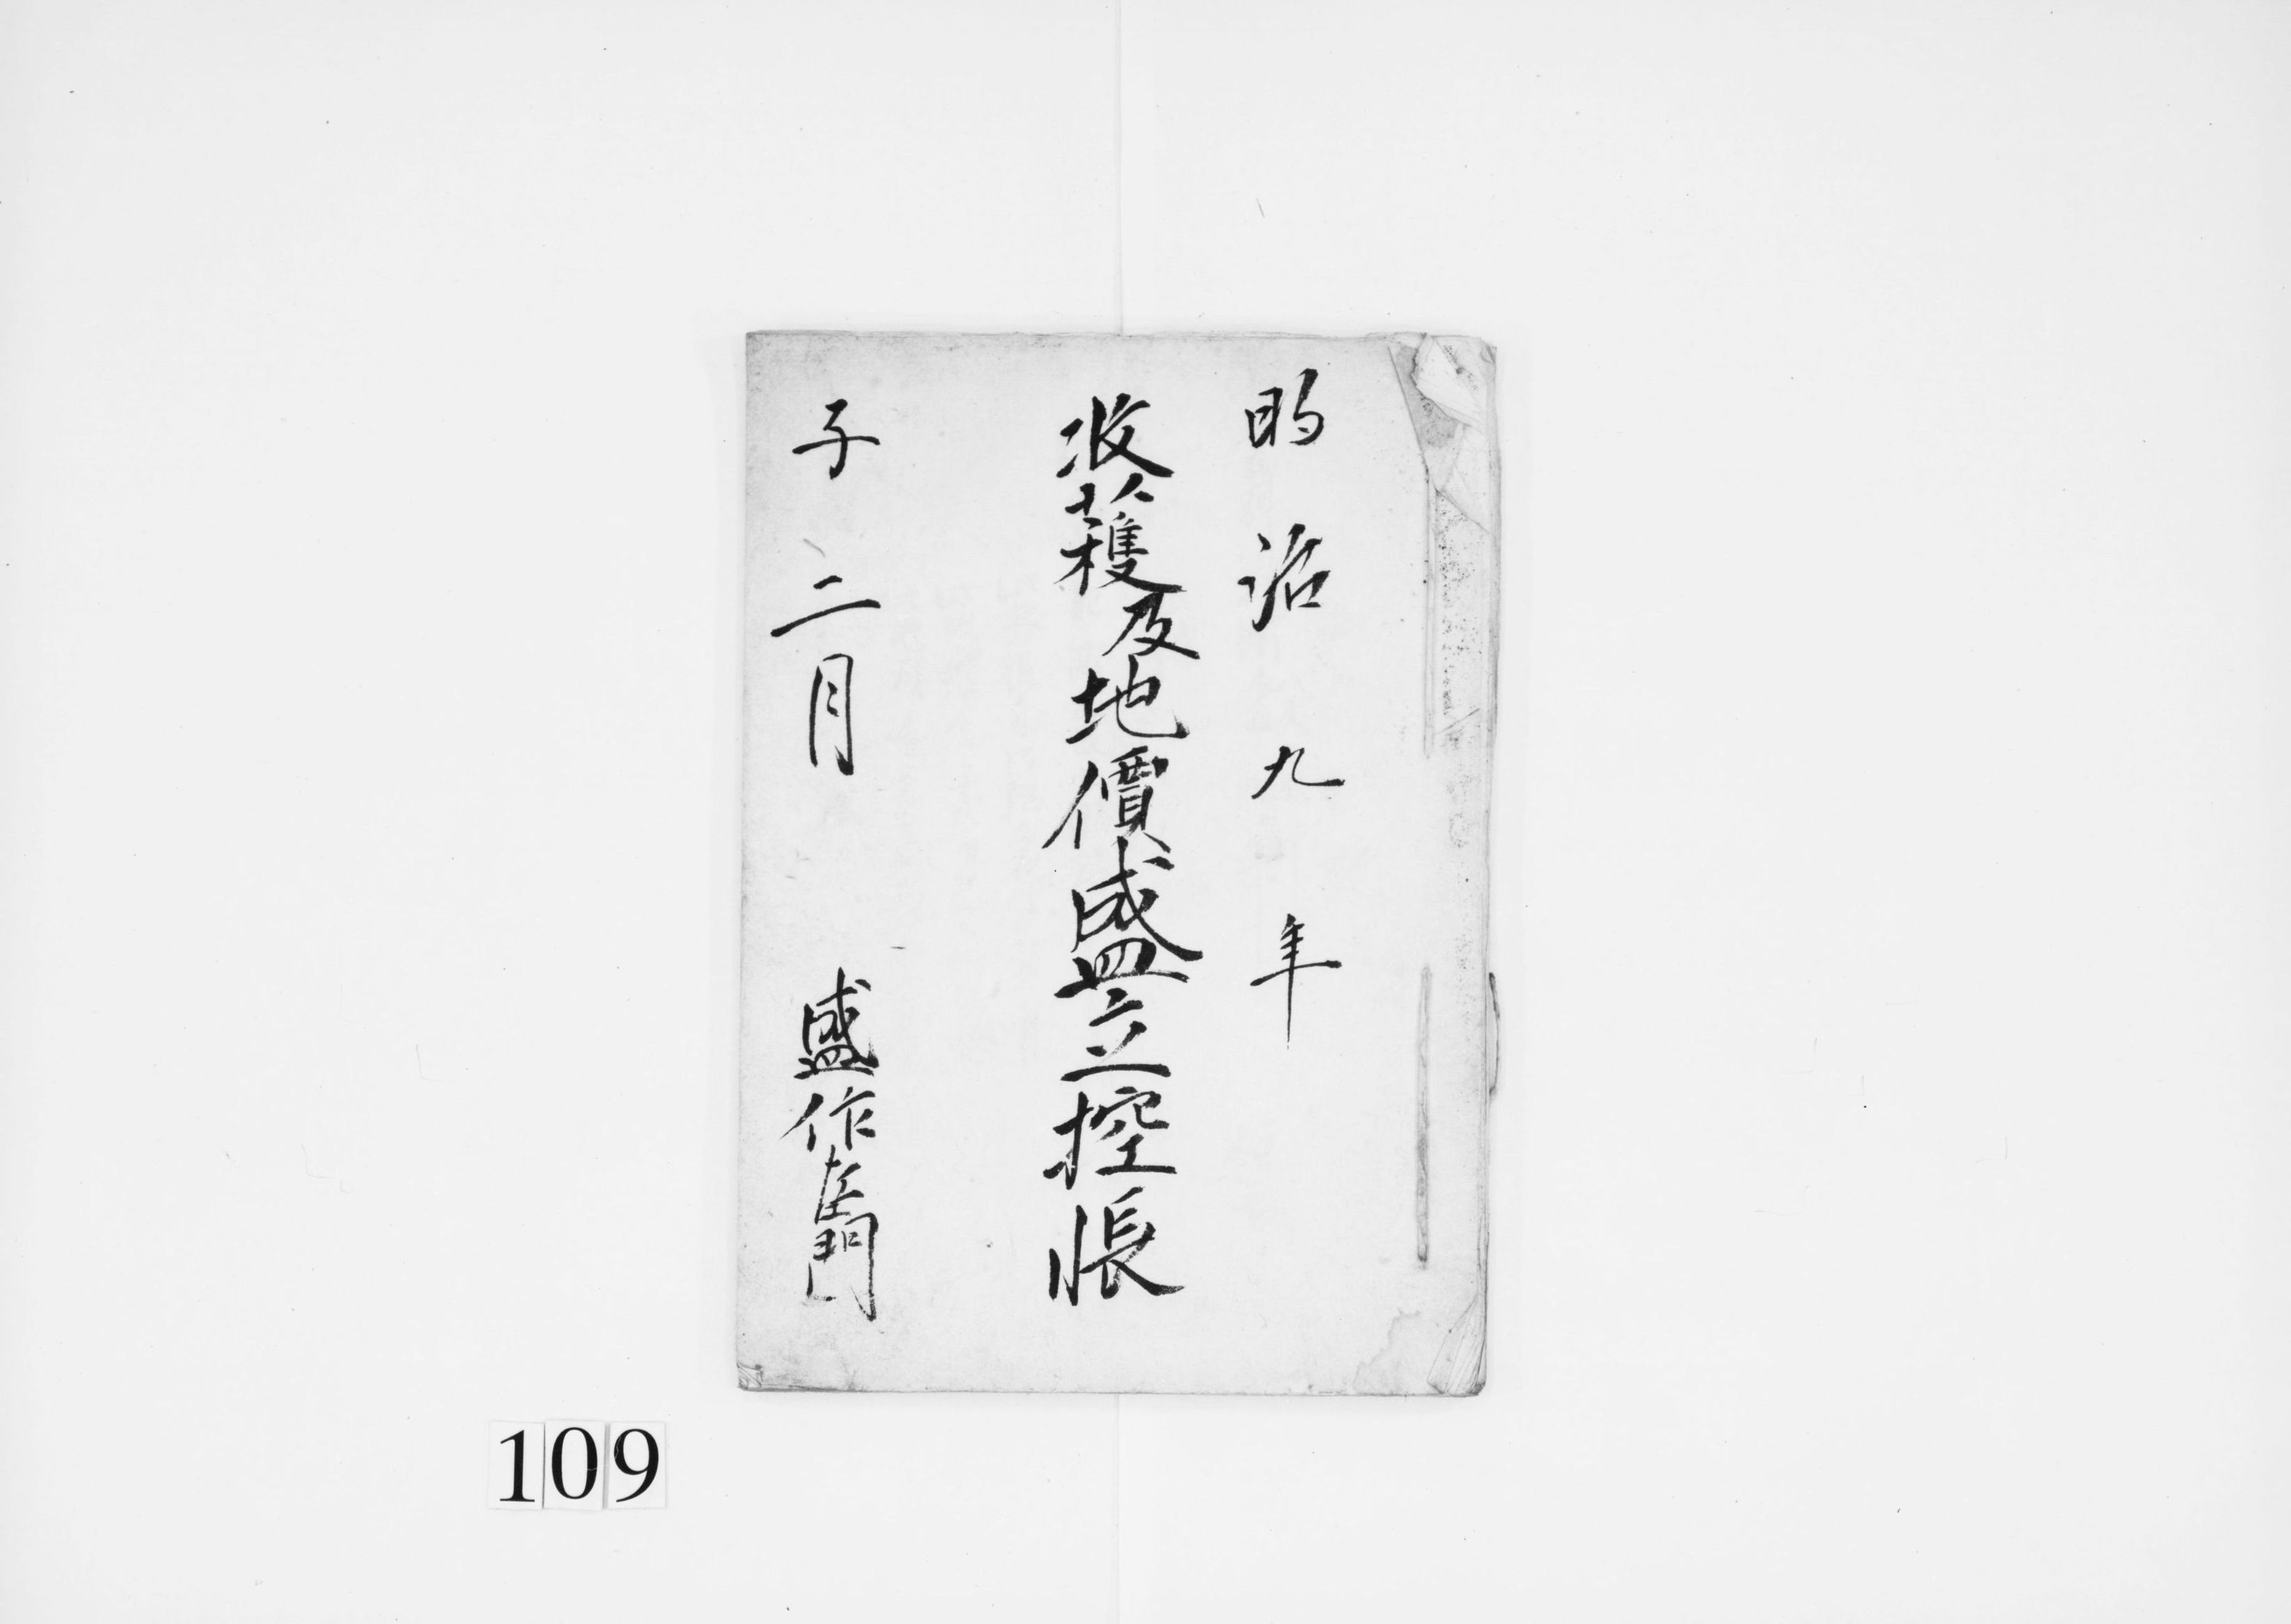 明治九年
收穫及地價盛立控帳
子二月
盛作左衛門
109